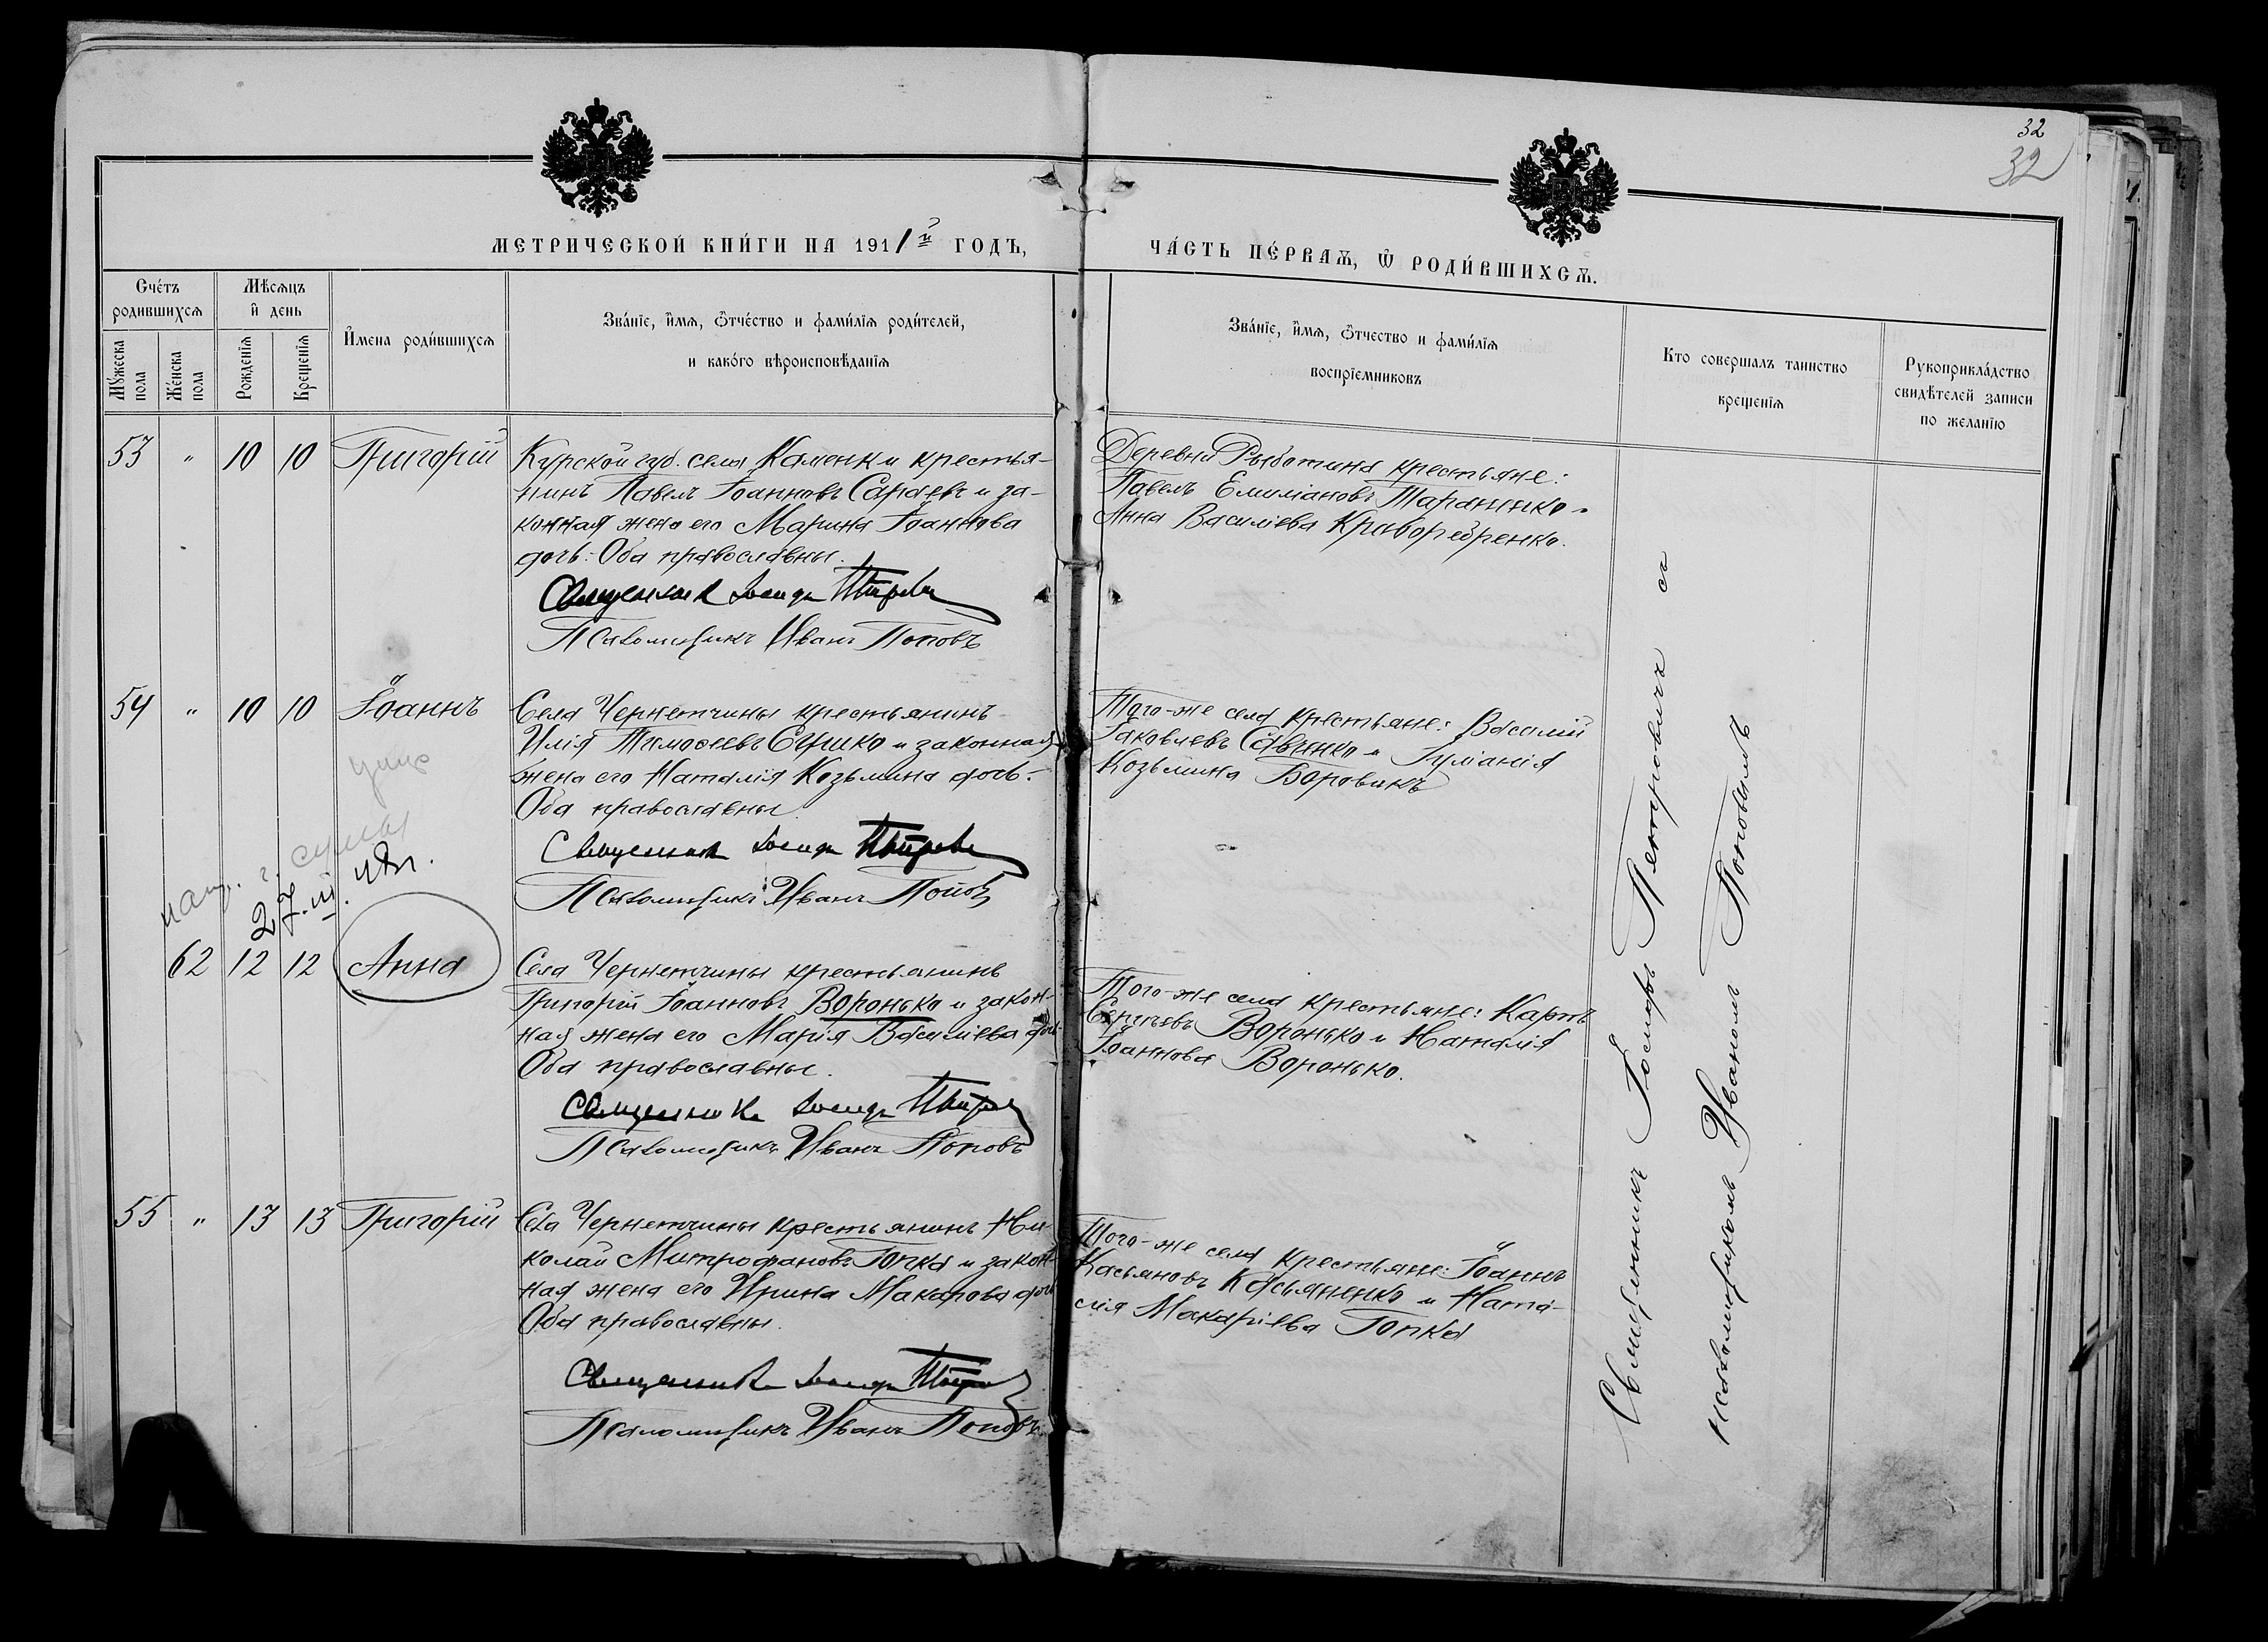 32
32
МЕТРИЧЕСКОЙ КНИ́ГИ НА 1911й ГОДЪ,
ЧА́СТЬ ПЕ́РВАѦ, Ѿ РОДИ́ВШИХСѦ.
Сче́тъ родившихсѧ
Мꙋ́жеска пола
Же́нска пола
Мѣ́сѧцъ и҆ день
Рожденїѧ
Крещенїѧ
И҆мена роди́вшихсѧ
Зва́нїе, и҆́мѧ, ѻ҆́тчество и фами́лїѧ роди́телей,
и како́го вѣроисповѣ́данїѧ
Зва́нїе, и҆́мѧ, ѻ҆́тчество и фами́лїѧ
воспрїе́мниковъ
Кто соверша́лъ таинство
креще́нїѧ
Рукоприкла́дство
свидѣ́телей записи
по жела́нїю
53 " 10 10 Григорій
Курской губ. села Каменки крестья-
нинъ Павелъ Іоанновъ Сараевъ и за-
конная жена его Марина Іоаннова
дочь: Оба православны.
Священникъ Іосифъ Петровичъ
Псаломщикъ Иванъ Поповъ
Деревни Рыботина крестьяне:
Павелъ Емиліановъ Тараненко и
Анна Василіева
54 " 10 10 Іоаннъ
Села Чернетчины крестьянинъ
Илія Тимоѳеевъ Сушко и законная
жена его Наталія Козьмина дочь:
Оба православны
Священникъ Іосифъ Петровичъ
Псаломщикъ Иванъ Поповъ
Того-же села крестьяне: Василій
Іаковлевъ Савенко и Іуліанія
Козьмина Боровикъ
г. сумы
27.III.
62 12 12 Анна
Села Чернетчины крестьянинъ
Григорій Іоанновъ Воронько и закон-
ная жена его Марія Василіева дочь
Оба православны.
Священникъ Іосифъ Петровичъ
Псаломщикъ Иванъ Поповъ
Того-же села крестьяне: Карпъ
Сергѣевъ Воронько и Наталія
Іоаннова Воронько.
55 " 13 13 Григорій
Села Чернетчины крестьянинъ Ни-
колай Митрофановъ Гопка и закон-
ная жена его Ирина Макарова дочь
Оба православны.
Священникъ Іосифъ Петровичъ
Псаломщикъ Иванъ Поповъ
Того-же села крестьяне: Іоаннъ
Касьяновъ Касьяненко и Ната-
лія Макаріева Гопка
Священникъ Іосифъ Петровичъ съ
псаломщикомъ Иваномъ Поповымъ